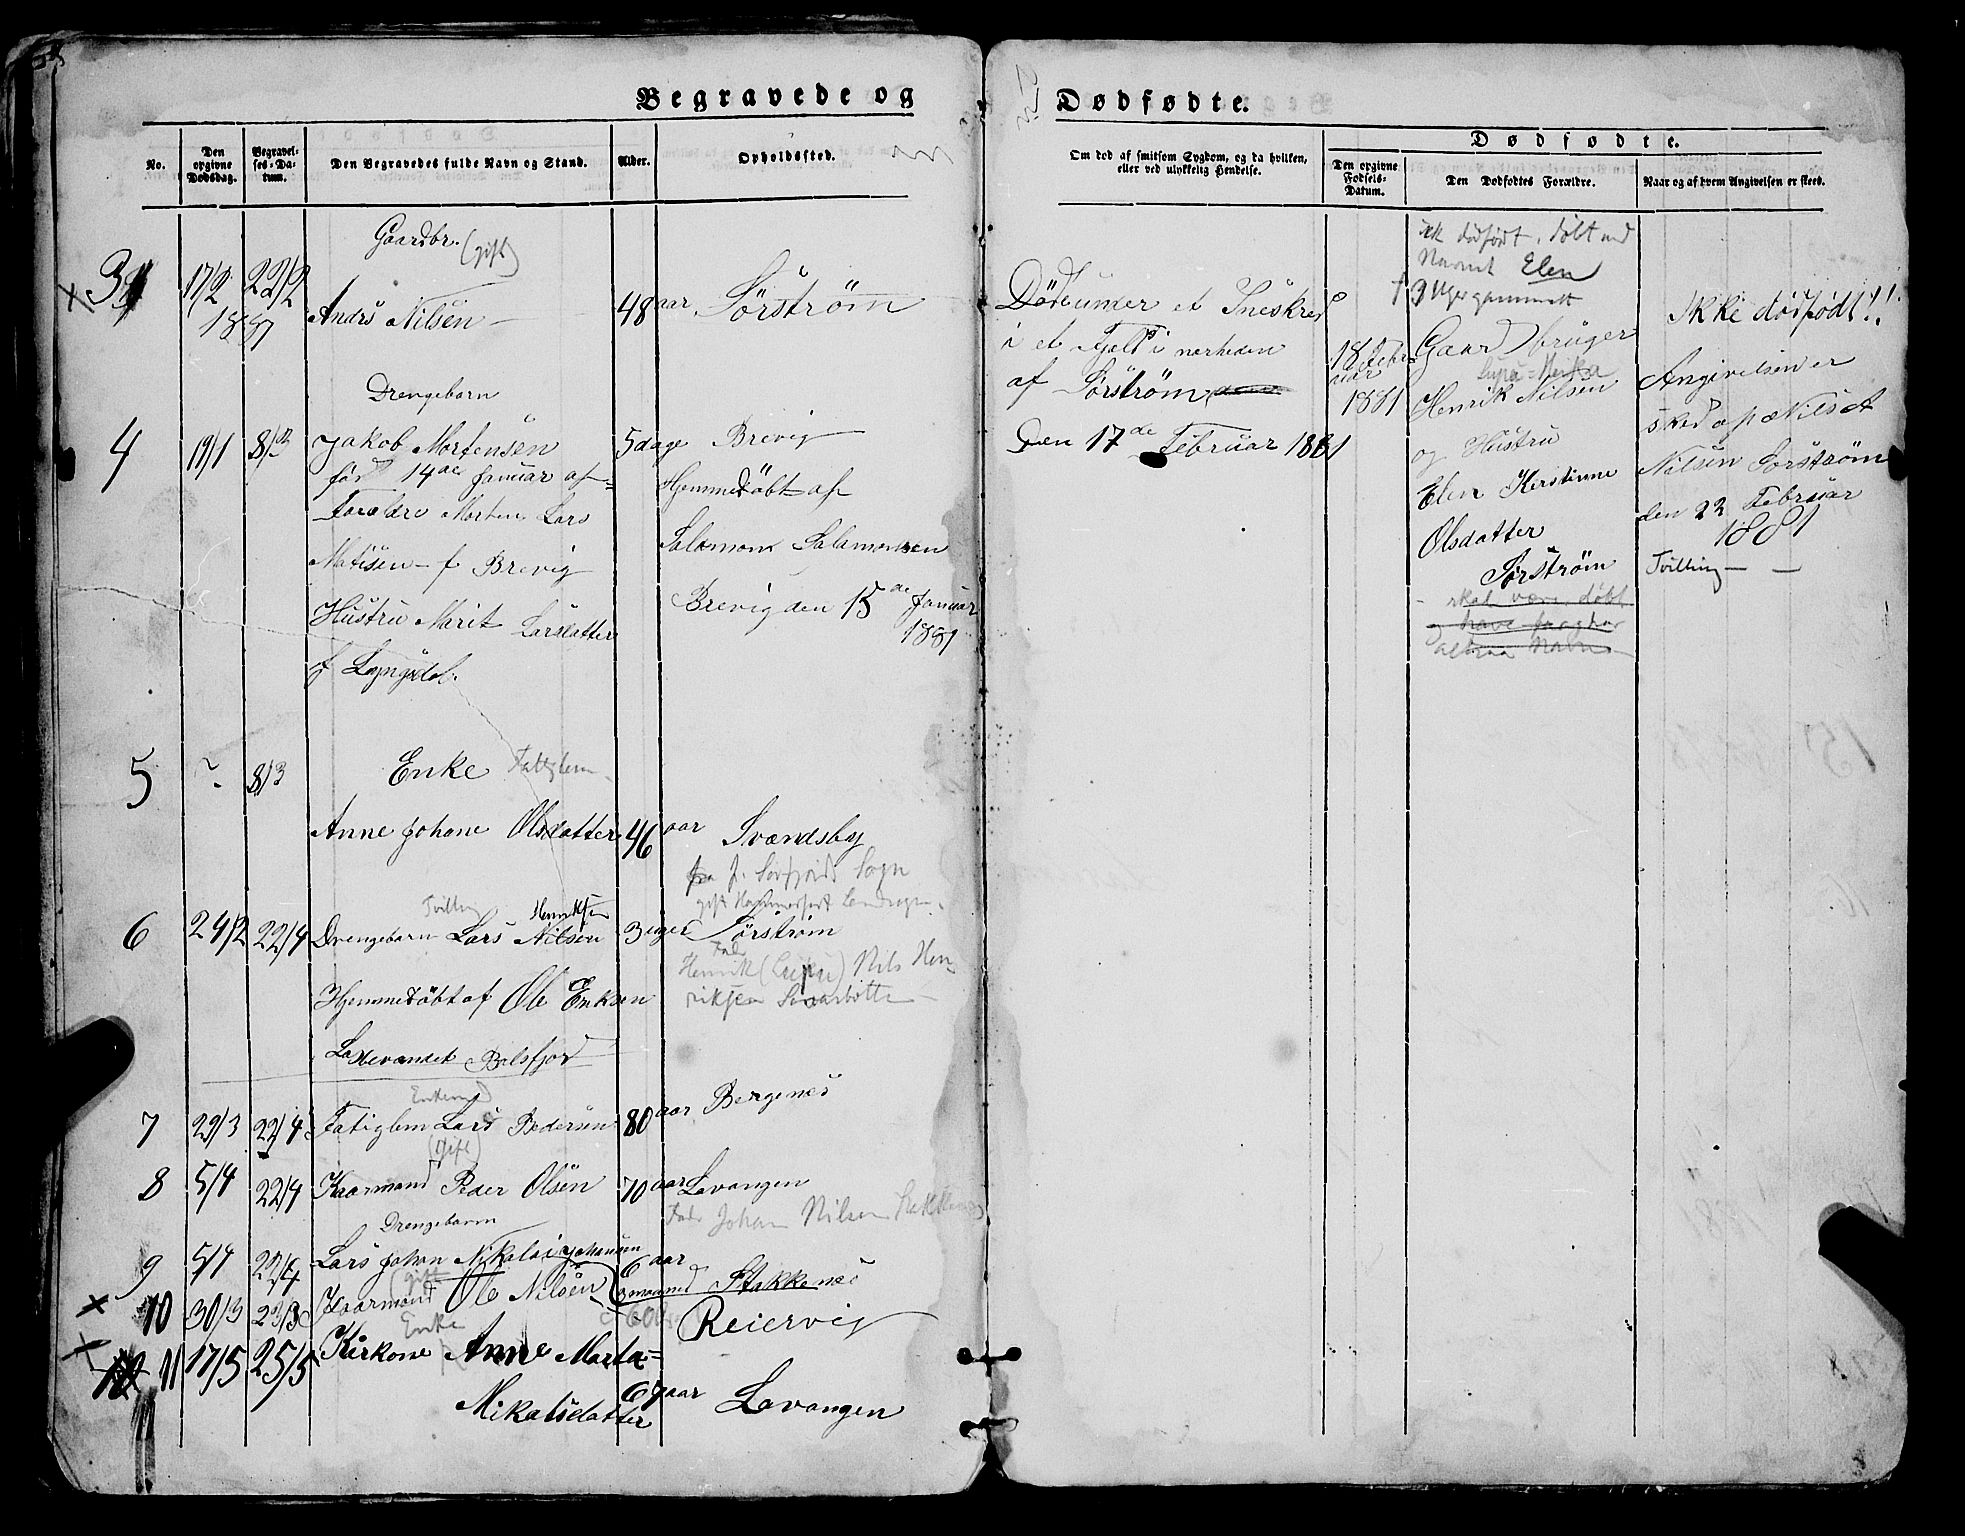 Begravede og
No.
Den opgivne Dødsdag.
Begravelses-Datum.
Den Begravedes fulde Navn og Stand.
Alder.
Opholdssted.
Gaardbr. (gift)
3 17/2 22/2
1881
Anders Nilsen — 48 aar Sørstrøm
Drengebarn
4 19/1 8/3 Jakob Mortensen 5 dage Brevig
født 14de Januar af
Hjemmedöbt af
Foreldre Morten Lars
Salamon Salamonsen
Matisen — f Brevig
Brevig den 15de Januar
1881
Hustru Marit Larsdatter
f Lyngsdal.
5 ? 8/3 Enke Fattiglem
Anne Johane Olsdatter 46 aar Svændsby
fra f. Sørfjord Sogn
gift Hammerfest Landsogn.
Tvilling Henriksen
6 24/2 22/4 Drengebarn Lars Nilsen 3 uger Sørstrøm
Fader
Henrik Nils Hen-
riksen
Hjemmedöbt af Ole Eriksen
Balsfjord
Enkemand
7 29/3 22/4 Fatiglem Lars Pedersen 80 aar Bergenes
(Gift)
8 5/4 22/4 Kaarmand Peder Olsen 70 aar Lavangen
Fader Johan Nilsen Stakkenes
Drengebarn
9 5/4 22/4 Lars Johan Nikolai Johansen 6 aar
3 maaned Stakkenes
(gift)
10 30/3 23/3 Kaarmand Ole Nilsen 60 Reiervig
Enke
11 17/5 25/5 Kirkone Anne Marta=
Nikalsdatter 67 aar Lavangen
Dødfødte.
Om død af smitsom Sygdom, og da hvilken,
eller ved ulykkelig Hendelse.
Dødfødte.
Den opgivne Fødsels-Datum.
Den Dødfødtes Forældre.
Naar og af hvem Angivelsen er skeed.
Döde under et Sneskred
i et Fjeld i nærheden
af Sørström
Den 17de Februar 1881
18 Febr-
uar
1881
ikk dødfødt. døbt med
Navnet Elen
† 3 Uger gammelt
Gaardbruger
Henrik Nilsen
og Hustru
Elen Kirstinne
Olsdatter
Sørstrøm
skal være døbt
og have
Navn
Ikke dødfødt!!
Angivelsen er
sked af Nils
Nilsen Sørstrøm
den 22 Februar
1881
Tvilling — —